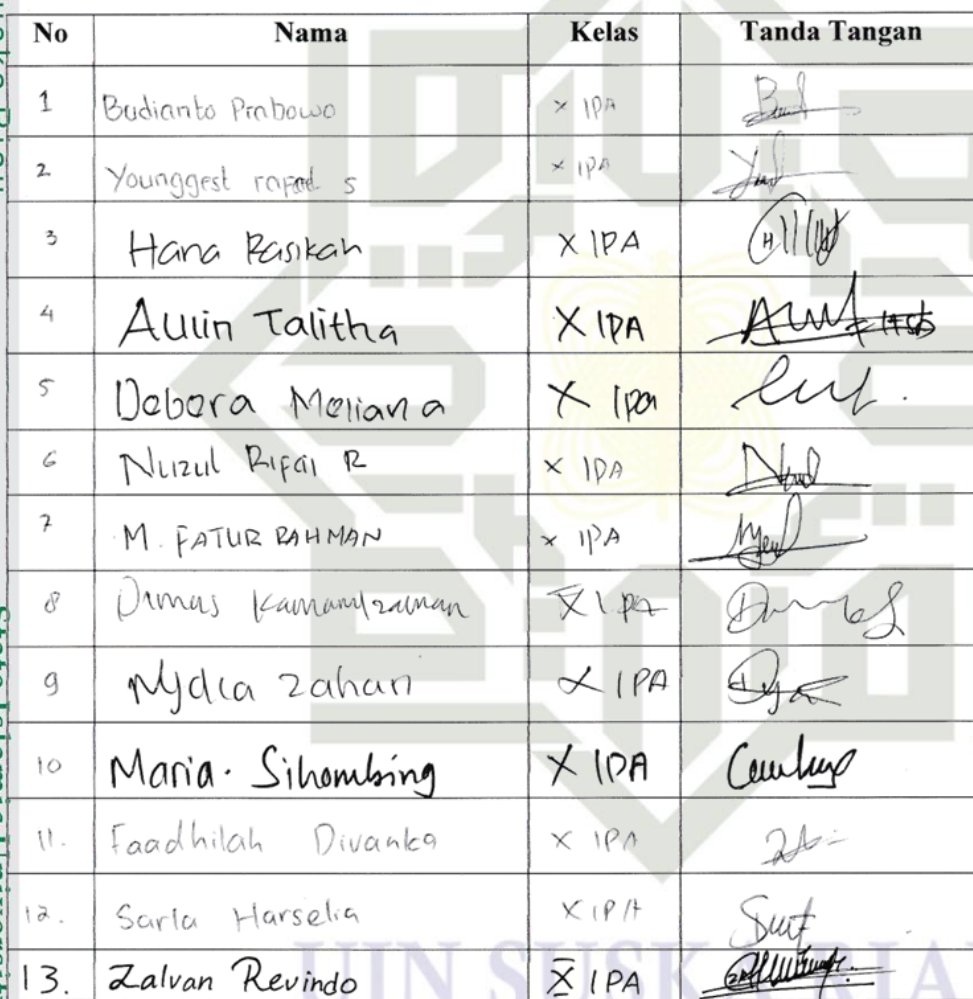 No Nama Kelas Tanda Tangan
1 Budianto Prabowo X IPA
2 Younggest S X IPA
3 Hana Rasikah X IPA
4 Aulin Talitha X IPA
5 Debora Meliana X Ipa
6 Nuzul Rifai R X IPA
7 M. FATUR RAHMAN X IPA
8 Dimas X IPA
9 Nydia Zahari X IPA
10 Maria. Sihombing X IPA
11. Faadhilah Divanka X IPA
12. Sarla Harselia X IPA
13. Zalvan Revindo X IPA
UIN SUSKA RIA